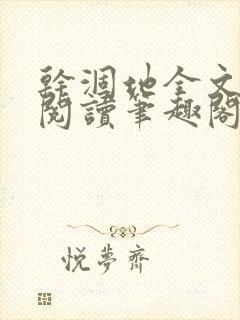 幹涸地全文
閱讀筆趣閣
悦夢齋